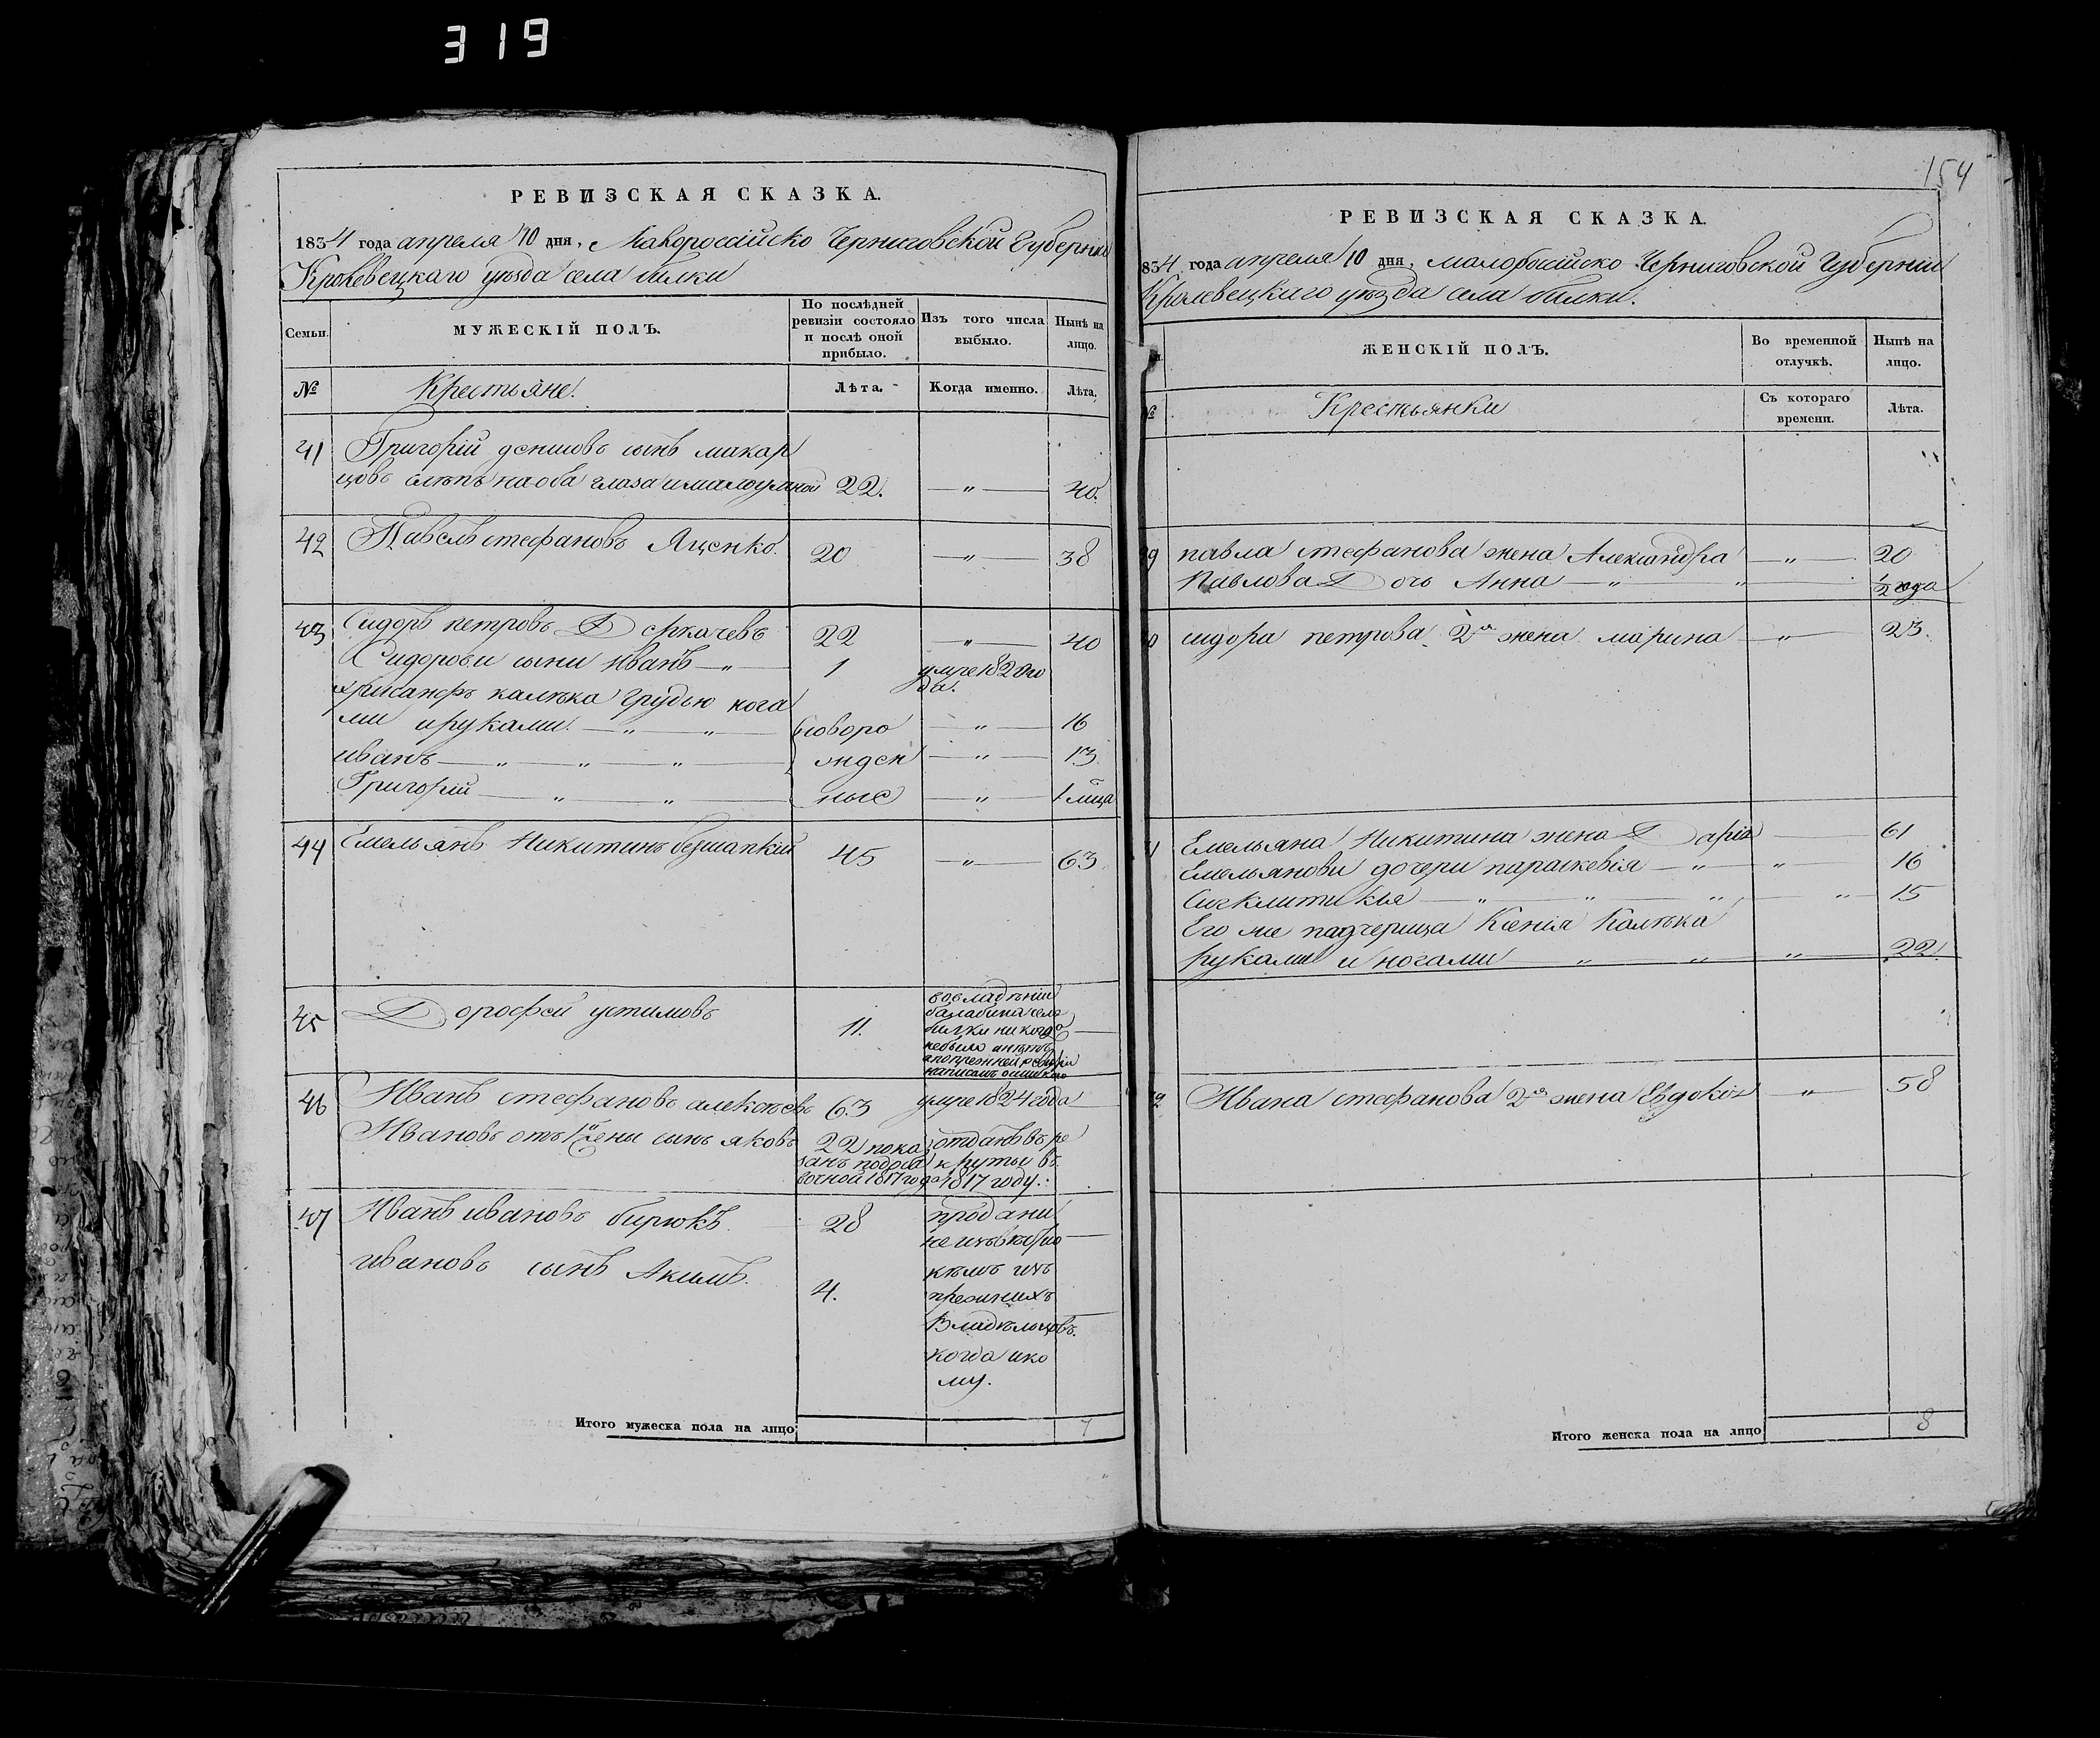 319
РЕВИЗСКАЯ СКАЗКА.
1834 года апреля 10 дня, Малороссійско Черниговской Губерніи
Кролевецкаго уѣзда села билки
Семьи.
МУЖЕСКІЙ ПОЛЪ.
По послѣдней ревизіи состояло и послѣ оной прибыло.
Изъ того числа выбыло.
Нынѣ на лицо.
№
Крестьяне.
Лѣта.
Когда именно.
Лѣта.
41 Григорій денисовъ сынъ макар
цовъ слѣпъ на оба глаза и малоумной 22. — " — 40.
42 Павелъ стефановъ Яценко. 20 — " — 38
43 Сидоръ петровъ Деркачевъ 22 — " — 40
Сидорови сыни Иванъ — " — 1 умре 1820 го
да.
хрисанфъ калѣка грудью нога
ми и руками. — " — " — новоро — " — 16
иванъ — " — " — " — жден — " — 13
Григорій — " — " — ные — " — 1 мца
44 Емельянъ Никитинъ безшапкій 45 — " — 63
45 Дорофей устимовъ 11.
во владѣніи
балабина села
билки никогда
небыло и нѣтъ
а попрежней ревизіи
написанъ
46 Иванъ стефановъ алексѣевъ 63 умре 1824 года
Ивановъ отъ 1й жены сынъ яковъ 22 пока
занъ по
1817 года
отданъ въ ре
круты въ
1817 году.
47 Иванъ ивановъ бирюкъ. 28
ивановъ сынъ Акимъ. 4.
продани
кѣмъ изъ
прежнихъ
Владѣльцовъ.
когда и ко
му.
Итого мужеска пола на лицо 7
154
РЕВИЗСКАЯ СКАЗКА.
834 года апреля 10 дня, малороссійско Черниговской Губерніи
Кролевецкаго уѣзда села билки.
ЖЕНСКІЙ ПОЛЪ.
Во временной отлучкѣ.
Нынѣ на лицо.
№
Крестьянки
Съ котораго времени.
Лѣта.
9 павла стефанова жена Александра — " — 20
Павлова Дочь Анна — " — " — 1/2 года
0 сидора петрова 2я жена марина — " — 23.
1 Емельяна Никитина жена Дарія — 61
Емельянови дочери параскевія — " — " — 16
— " — " — " — " — 15
Его же падчерица Ксенія Калѣка
руками и ногами — " — " — " — 22.
2 Ивана стефанова 2я жена Евдокія — " — 58
Итого женска пола на лицо 8